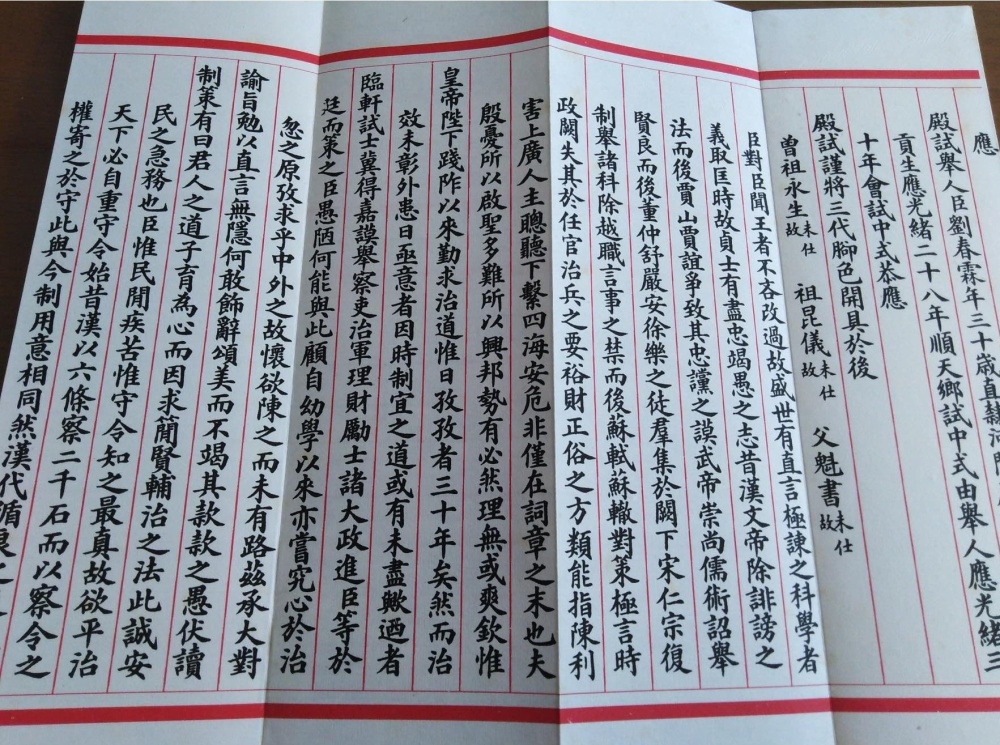 應
殿試舉人臣劉春霖年三十歲直隸
貢生應光緒二十八年順天鄉試中式由舉人應光緒三
十年會試中式恭應
殿試謹將三代腳色開具於後
曾祖永生未仕故 祖昆儀未仕故 父魁書未仕故
臣對臣聞王者不吝改過故盛世有直言極諫之科學者
義取匡時故貞士有盡忠竭愚之志昔漢文帝除誹謗之
法而後賈山賈誼爭致其忠讜之謨武帝崇尚儒術詔舉
賢良而後董仲舒嚴安徐樂之徒羣集於闕下宋仁宗復
制舉諸科除越職言事之禁而後蘇軾蘇轍對策極言時
政闕失其於任官治兵之要裕財正俗之方類能指陳利
害上廣人主聰聽下繫四海安危非僅在詞章之末也夫
殷憂所以啟聖多難所以興邦勢有必然理無或爽欽惟
皇帝陛下踐阼以來勤求治道惟日孜孜者三十年矣然而治
效未彰外患日亟意者因時制宜之道或有未盡歟迺者
臨軒試士冀得嘉謨舉察吏治軍理財勵士諸大政進臣等於
廷而策之臣愚陋何能與此顧自幼學以來亦嘗究心於治
忽之原攷求乎中外之故懷欲陳之而未有路茲承大對
諭旨勉以直言無隱何敢飾辭頌美而不竭其款款之愚伏讀
制策有曰君人之道子育為心而因求簡賢輔治之法此誠安
民之急務也臣惟民間疾苦惟守令知之最真故欲平治
天下必自重守令始昔漢以六條察二千石而以察令之
權寄之於守此與今制用意相同然漢代循良